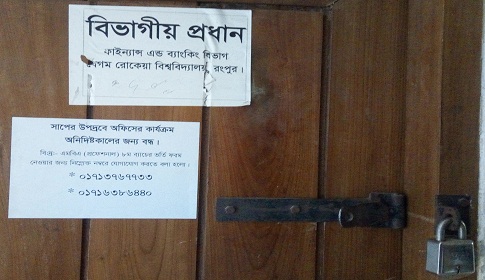 বিভাগীয় প্রধান
ফাইন্যান্স এন্ড ব্যাংকিং বিভাগ
বেগম রোকেয়া বিশ্ববিদ্যালয়, রংপুর।
সাপের উপদ্রবে অফিসের কার্যক্রম
অনির্দিষ্টকালের জন্য বন্ধ।
বিঃদ্রঃ- এমবিএ (প্রফেশনাল) ৮ম ব্যাচের ভর্তি ফরম
নেওয়ার জন্য নিম্নোক্ত নম্বরে যোগাযোগ করতে বলা হলো।
* ০১৭১৩৭৬৭৭৩৩
* ০১৭১৬৩৮৬৪৪০